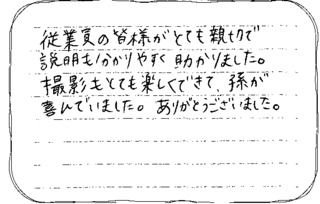 従業員の皆様がとても親切で
説明も分かりやすく助かりました。
撮影もとても楽しくできて、孫が
喜んでいました。ありがとうございました。